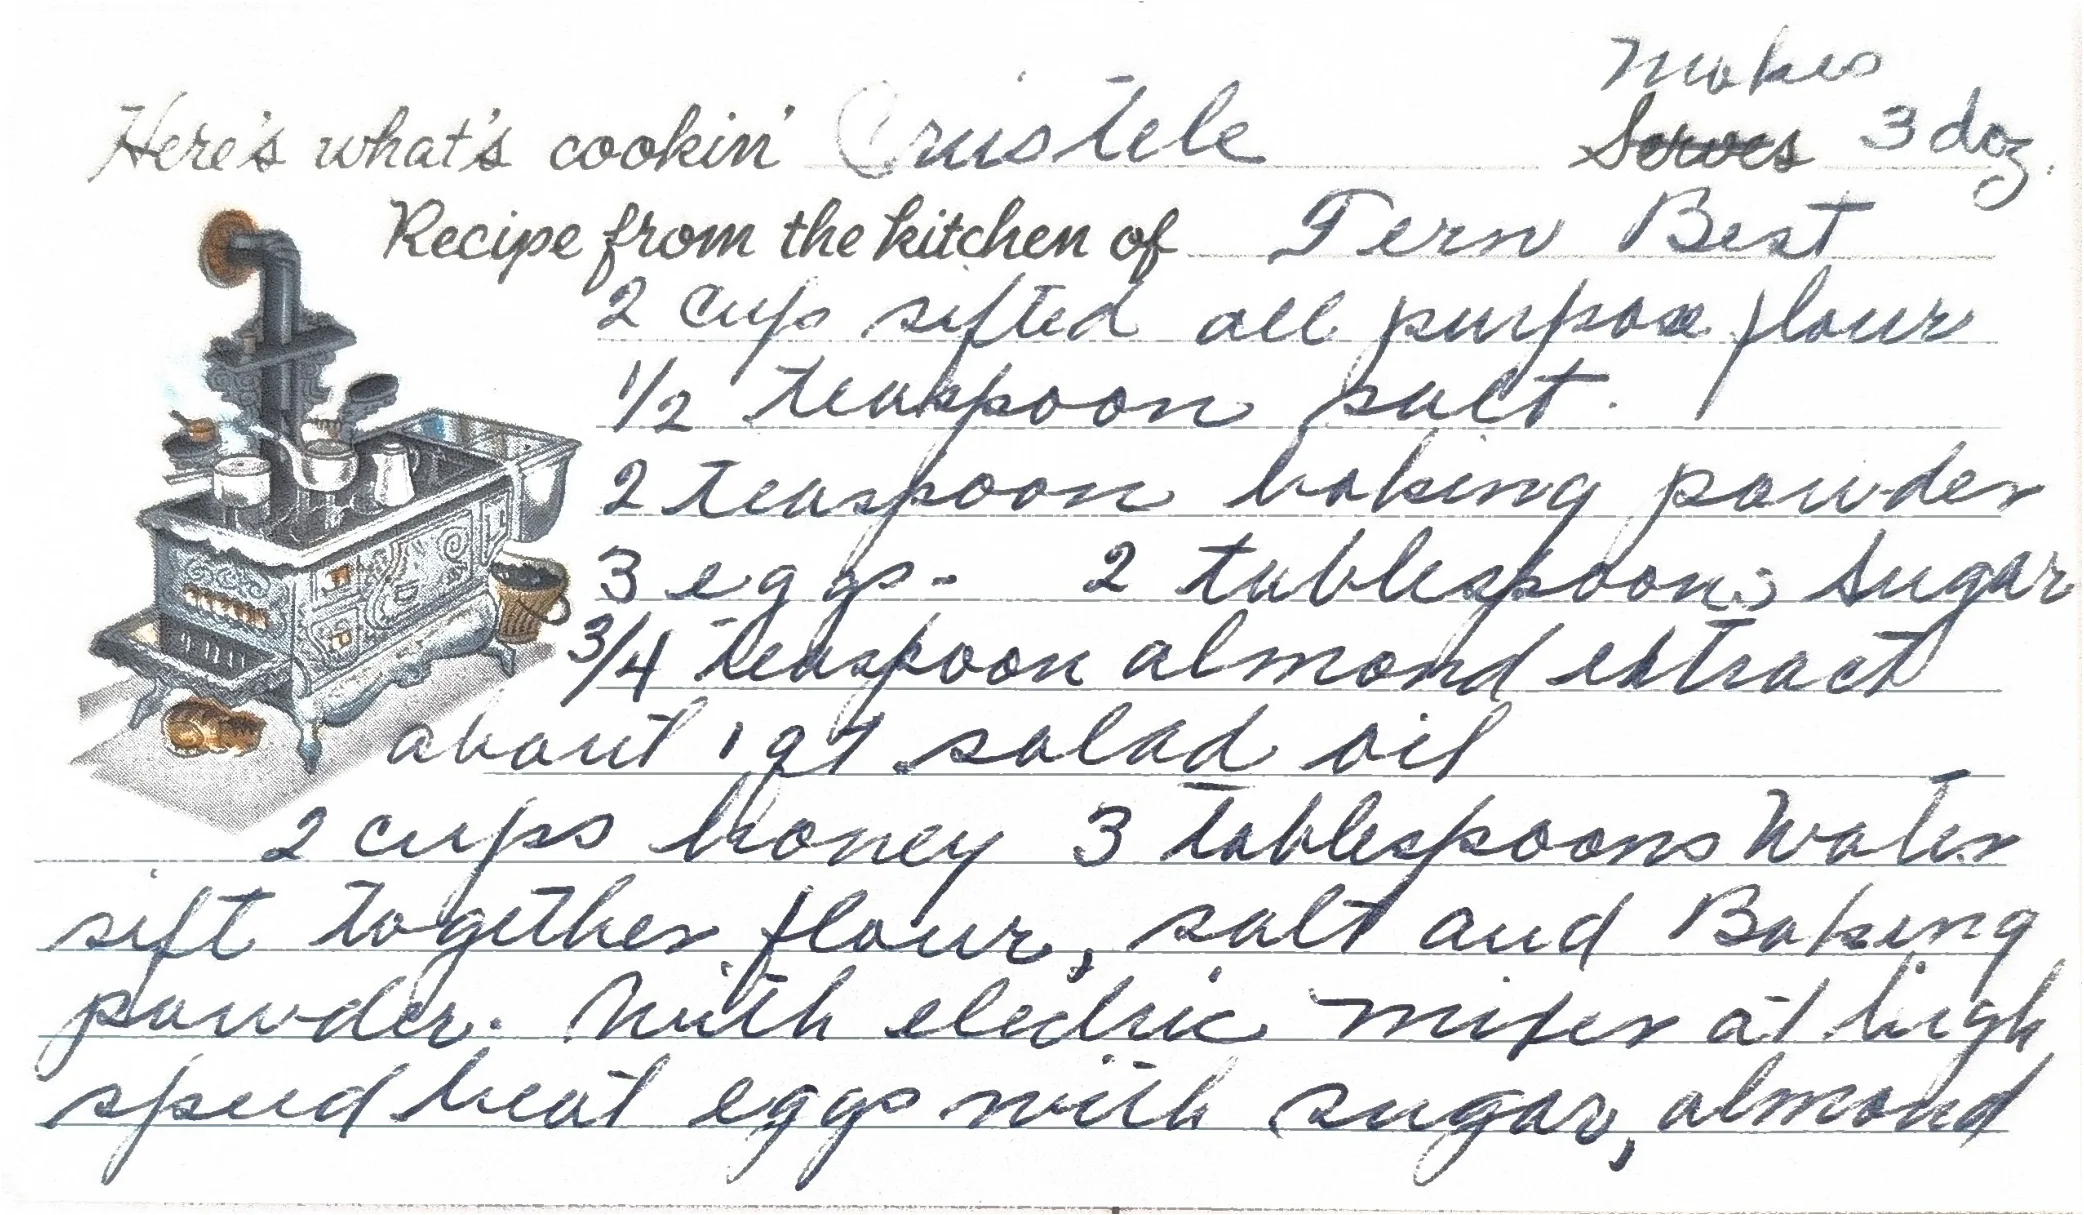 Makes
Here's what's cookin' Cruistele Serves 3 doz.
Recipe from the kitchen of Fern Best
2 cups sifted all purpose flour
1/2 teaspoon salt.
2 teaspoon baking powder
3 eggs - 2 tablespoons sugar
3/4 teaspoon almond extract
about 1 qt salad oil
2 cups honey 3 tablespoons Water
sift together flour, salt and Baking
powder. With electric mixer at high
speed beat eggs with sugar, almond